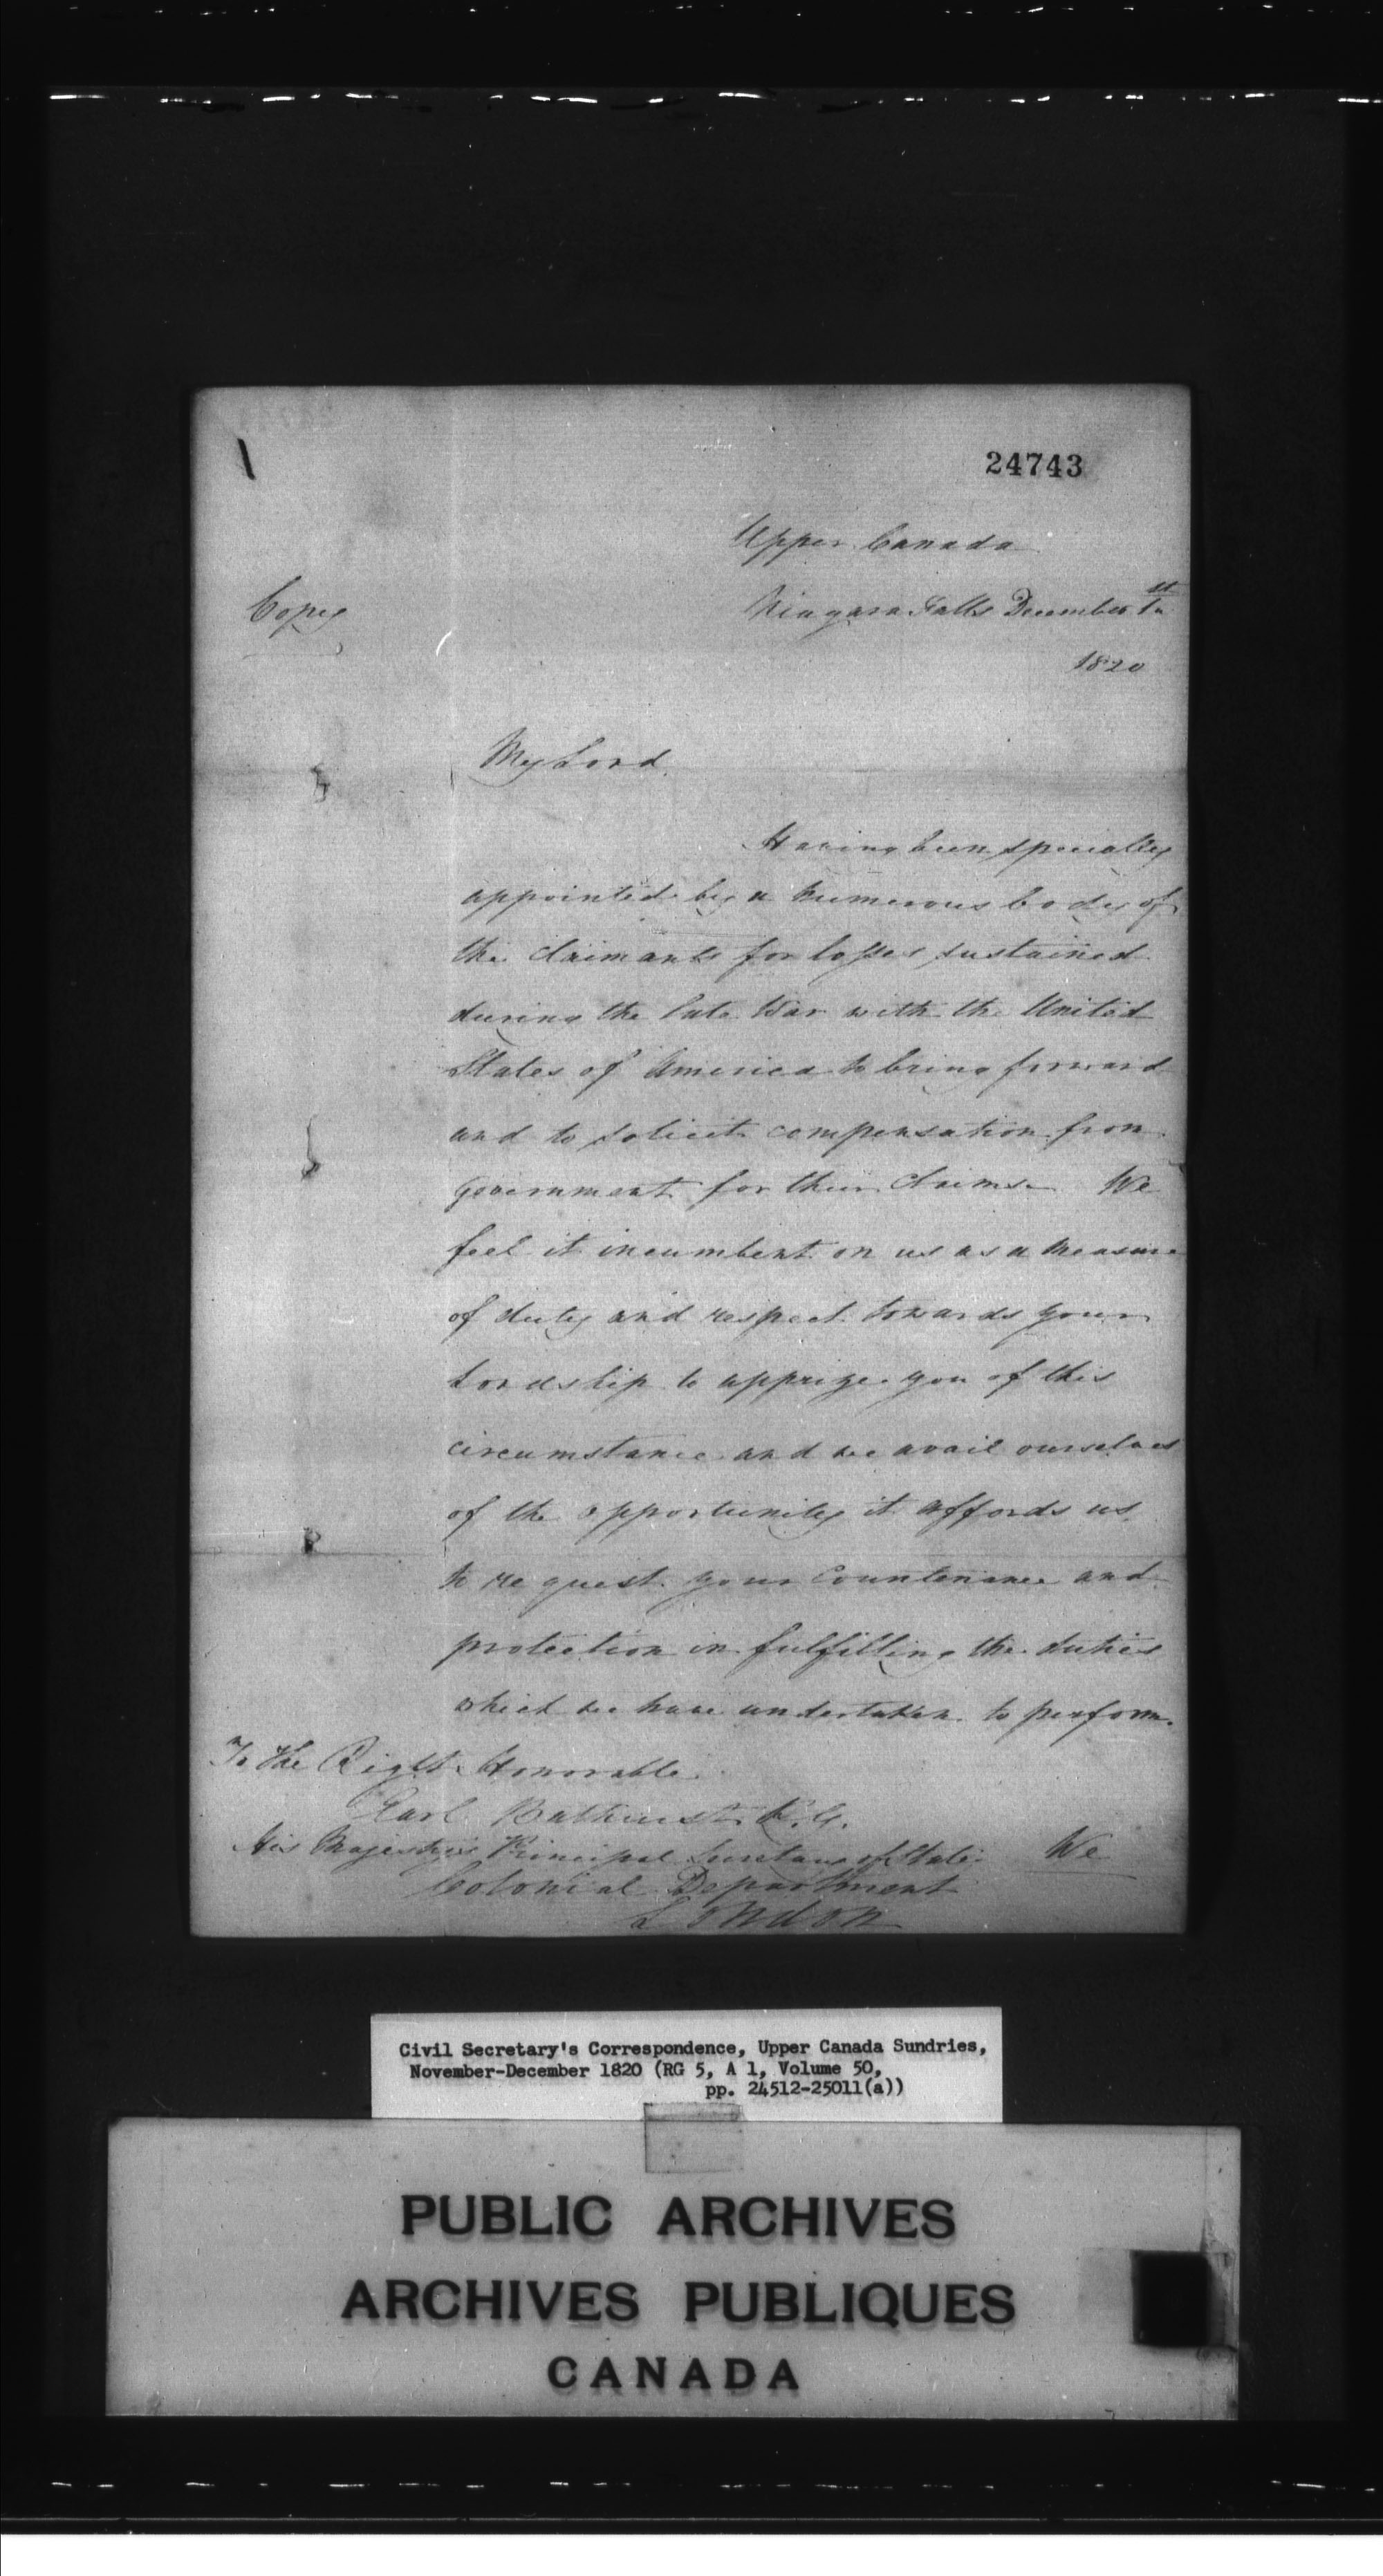 24743
Upper Canada
Copy
Niagara Falls December 1st
1820
My Lord
Having been specially
appointed by a numerous body of
the claimants for losses sustained
during the late War with the United
States of America to bring forward
and to solicit compensation from
government for their claims. We
feel it incumbent on us as a measure
of duty and respect towards your
Lordship to apprize you of this
circumstance and we avail ourselves
of the opportunity it affords us
to request your countenance and
protection in fulfilling the duties
which we have undertaken to perform.
To the Right Honorable
Earl Bathurst K.G.
His Majesty's Principal Secretary of State
We
Colonial Department
London
Civil Secretary's Correspondence, Upper Canada Sundries,
November-December 1820 (RG 5, A 1, Volume 50,
pp. 24512-25011(a))
PUBLIC ARCHIVES
ARCHIVES PUBLIQUES
CANADA